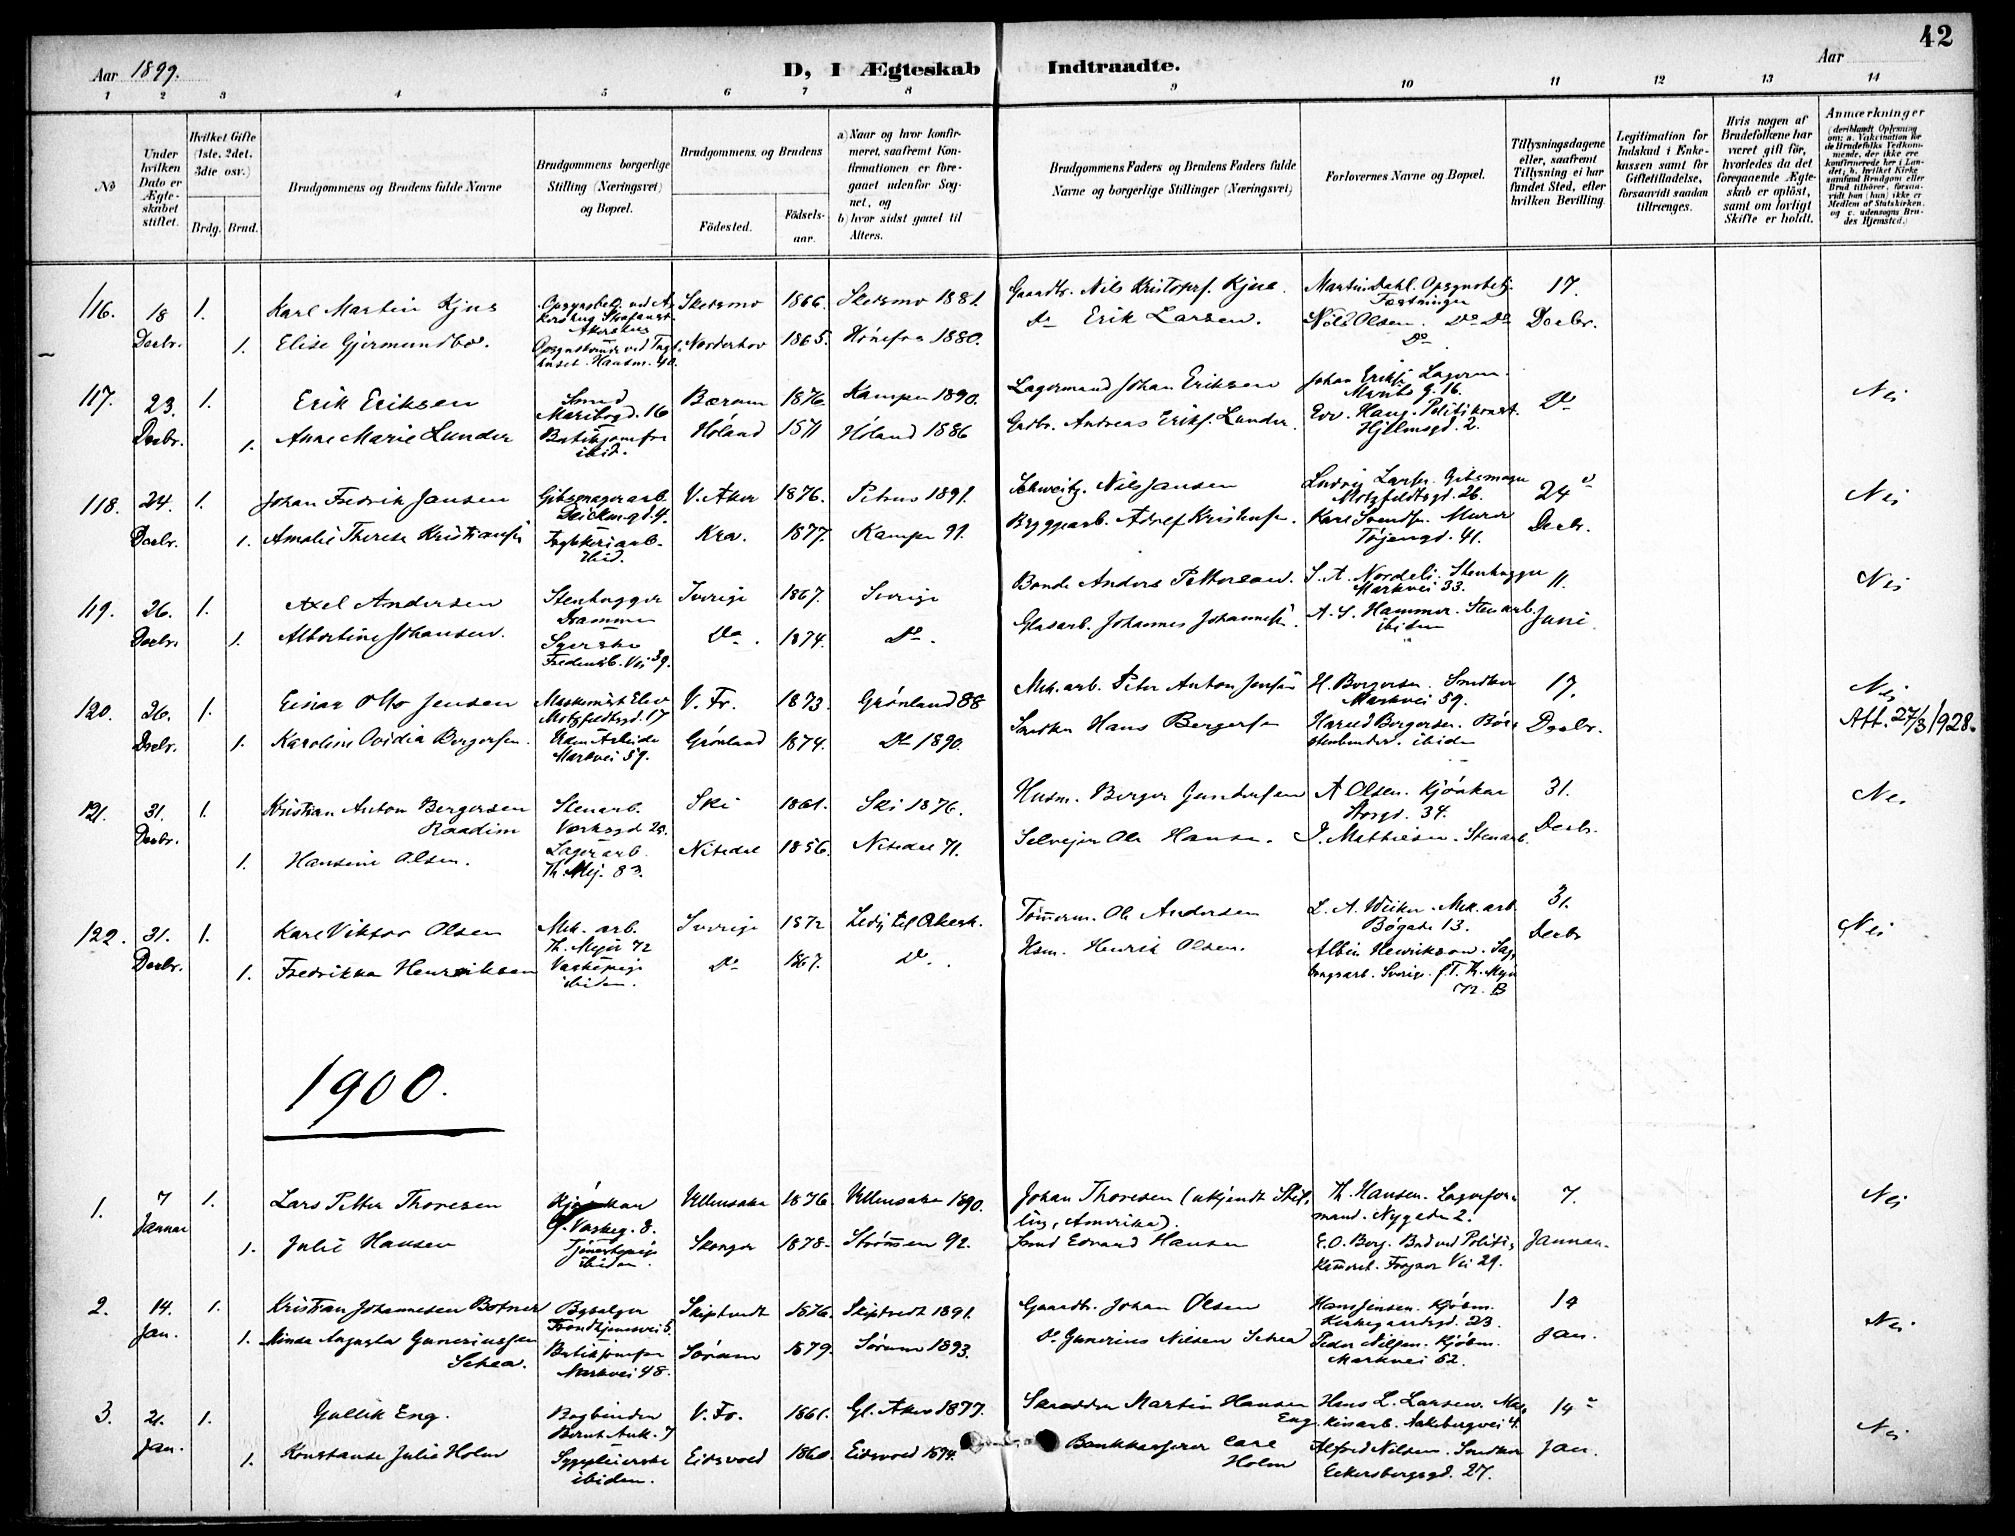 42
Aar 1899.
D, I Ægteskab Indtraadte.
Aar
1 2 3 4 5 6 7 8 9 10 11 12 13 14
No
Under hvilken Dato er Ægteskabet stiftet.
Hvilket Gifte (1ste, 2det, 3die osv.)
Brdg. Brud.
Brudgommens og Brudens fulde Navne
Brudgommens borgerlige Stilling (Næringsvei) og Bopæl.
Brudgommens og Brudens
Födested.
Födselsaar.
a) Naar og hvor konfirmeret, saafremt Konfirmationen er foregaaet udenfor Sognet, og
b) hvor sidst gaaet til Alters.
Brudgommens Faders og Brudens Faders fulde Navne og borgerlige Stillinger (Næringsvei)
Forlovernes Navne og Bopæl.
Tillysningsdagene eller, saafremt Tillysning ei har fundet Sted, efter hvilken Bevilling.
Legitimation for Indskud i Enkekassen samt for Giftetilladelse, forsaavidt saadan tiltrænges.
Hvis nogen af Brudefolkene har været gift før, hvorledes da det foregaaende Ægteskab er oplöst, samt om lovligt Skifte er holdt.
Anmærkninger
(deriblandt Oplysning om: a. Vakcination for de Brudefolks Vedkommende, der ikke ere konfirmerede her i Landet; b. hvilket Kirkesamfund Brudgom eller Brud tilhörer, forsaavidt han (hun) ikke er Medlem af Statskirken, og c. udensogns Brudes Hjemsted.)
116. 18 Decbr. 1. Karl Martin Kjus Skedsmo 1866. Skedsmo 1881. Gaardbr. Nils Kristoprf. Kjus Martin Dahl. Opsynsbetj. Fæstningen 17.
1. Elise Gjermundbo. Norderhov 1865. Hönefos 1880. Do Erik Larsen. Nils Olsen. Do Do Decbr.
117. 23. Decbr. 1. Erik Eriksen Smed Maribogd. 16 Bærum 1876. Kampen 1890. Lagermand Johan Eriksen Johan Eriks. Lagerm. Maribo g. 16. Do Nei
1. Anne Marie Lunder Butikjomfru ibid. Höland 1871 Höland 1886 Gdbr. Andreas Eriks. Lunder. Haug. Politikonst. Hjelmsgd. 2.
118. 24. Decbr. 1. Johan Fredrik Jansen Gibsmagerarb. V. Aker 1876. Petrus 1891. Schweitz. Nils Jansen Ludvig Larsen. Gibsmager Motzfeldtsgd. 26. 24 Decbr. Nei
1. Amalie Therese Kristiansen ibid. Kra. 1877. Kampen 91. Bryggearb. Adolf Kristians. Karl Svendsen. Murer Töjengd. 41.
119. 26. Decbr. 1. Axel Andersen Stenhugger Drammen Sverige 1867. Sverige Bonde Anders Petterson. S. A. Nordeli. Stenhugger Markvei 33. 11. Juni. Nei
1. Albertine Johansen. Syerske Fredensb. Vei 39. Do. 1874. Do. Glasarb. Johannes Johannesen. A. S. Hammer. Stenarb. ibiden
120. 26. Decbr. 1. Einar Otto Jensen Maskinist Elev Motzfeldtsgd. 17 V. Fr. 1873. Grönland 88 Mek. arb. Peter Anton Jensen H. Bergersen. Snedker Markvei 59. 17. Decbr. Nei
1. Karoline Ovidia Bergersen. Uden Arbeide Markvei 59. Grönland 1874. Do 1890. Snedker Hans Bergersen Harald Bergersen. Börstenbinder. ibiden Att. 27/3 1928.
121. 31. Decbr. 1. Kristian Anton Bergersen Raadim Stenarb. Verksgd 20. Ski 1861. Ski 1876. Husm. Berger Gundersen A Olsen. Kjörekar Storgd. 34. 31. Decbr. Nei
1. Hansine Olsen. Lagerarb. Th. Mej. 83. Nitedal 1856. Nitedal 71. Selveier Ole Hansen. J. Mathiesen. Stenarb.
122. 31. Decbr. 1. Karl Viktor Olsen Mek. arb. Th. Mejs 72 Sverige 1872 Ledig til Akersh. Tömmerm. Ole Andersen L. A. Weiker. Mek. arb. Bögata 13. 31. Decbr Nei
1. Fredrikka Henriksen Vaskepige ibiden. Do 1867. Do. Hsm. Henrik Olsen. Albin Henrikson. Sverige. f. T. Th. Mejs 72. B
1900.
1. 7 Januar 1. Lars Petter Thoresen Kjörekar G. Vaskeg. 8. Ullensaker 1876. Ullensaker 1890. Johan Thoresen (ukjendt Stilling, Amerika). Th. Hansen. Lagerformand. Nygaden 2. 7. Januar. Nei
1. Julie Hansen Tjenestepige ibiden. Skonger 1878. Strömmen 92. Smed Edvard Hansen E. O. Berg. Bud ved Politikamret. Frogner Vei 29.
2. 14. Jan. 1. Kristian Johannesen Botner Bryg Trondhjemsvei 5. Skiptvedt 1876. Skiptvedt 1891. Gaardbr. Johan Olsen Hans Jensen. Kjöbm. Kirkegaardsgd. 23. 14 Jan. Nei
1. Minda Augusta Gunerius­sen Schea. Butikjomfru Markvei 48. Sörum 1879. Sörum 1893. Do Gunerius Nilsen Schea Peder Nilsen. Kjöbm. Markvei 52.
3. 21. Jan. 1. Gullik Eng. Bogbinder Bernt Ank. 7 V. Fr. 1861. Gl. Aker 1877. Skrædder Martin Hansen Eng. Hans L. Larsen. Maskinarb. Aakebergvei 4. 14 Jan. Nei
1. Konstanse Julie Holm Sygepleierske ibiden. Eidsvold 1860. Eidsvold 1874. Bankkasserer Carl Holm Alfred Nilsen. Snedker Eckersbergsgd. 27.